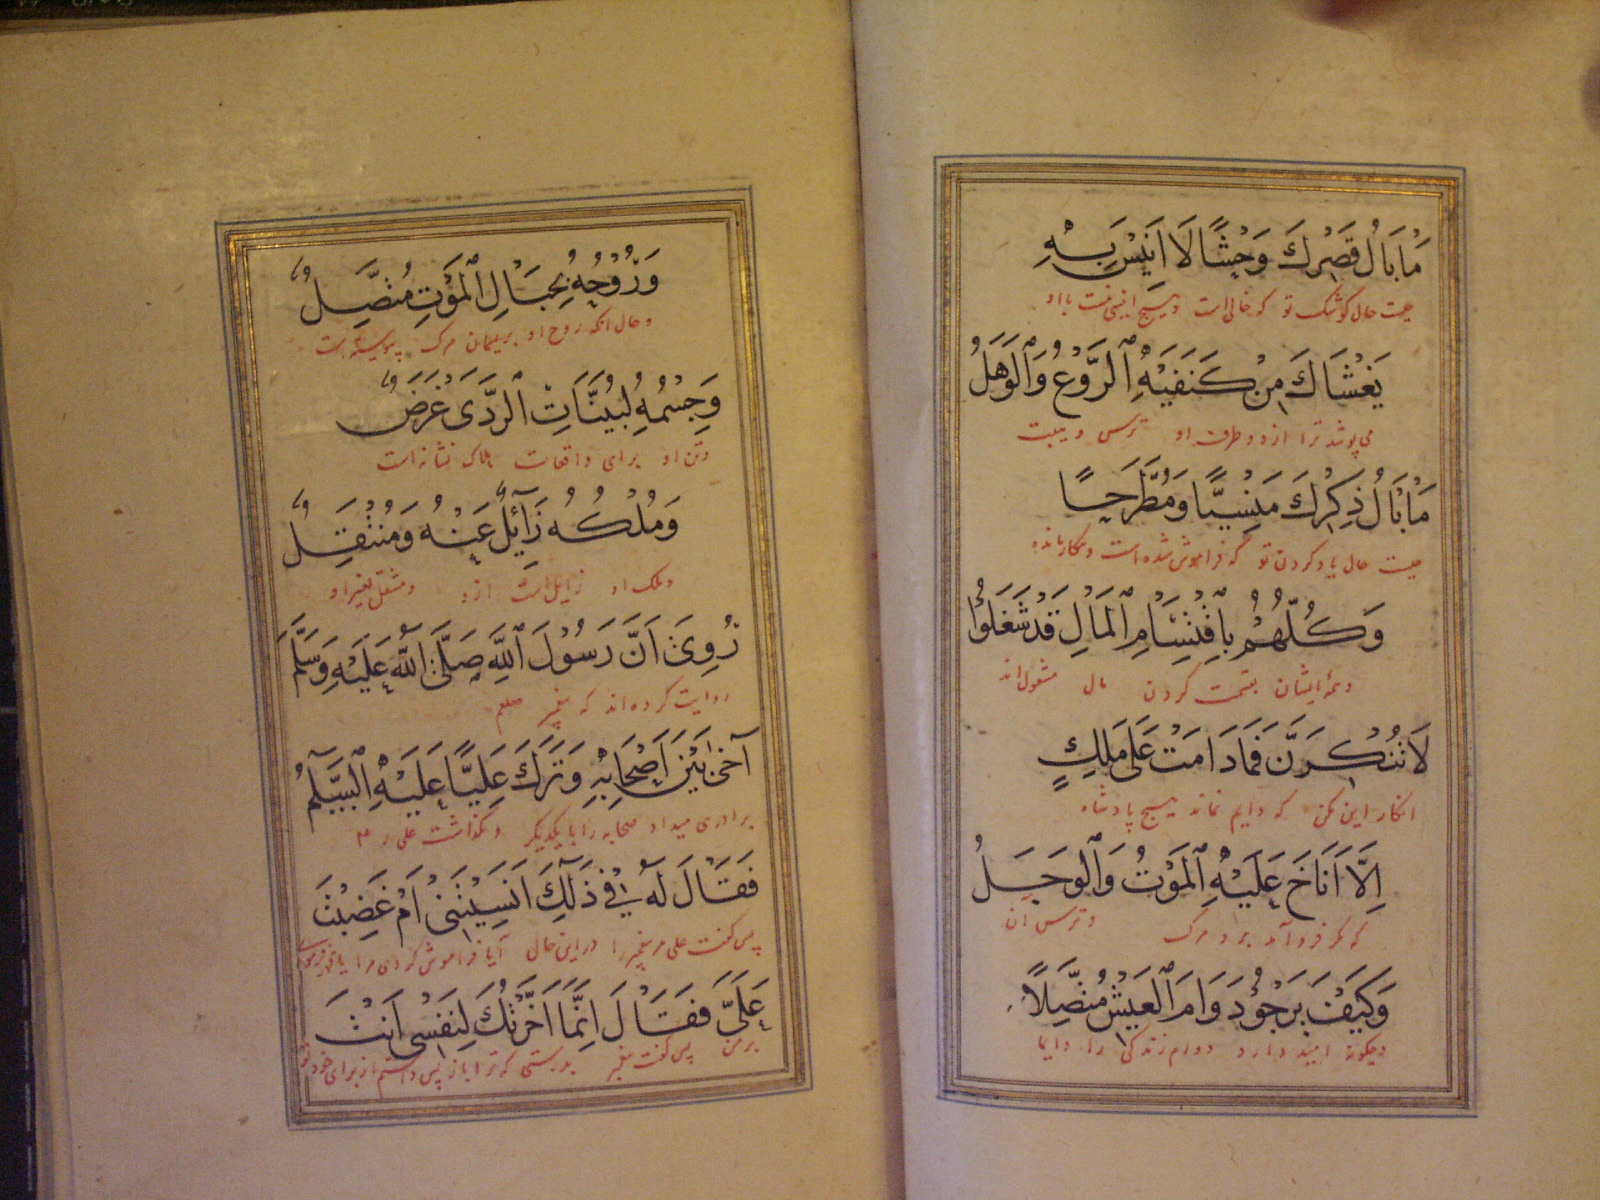 مَا بَالُ قَصْرِكَ وَحْشًا لَا اَنِيْسَ بِهِ
چیست حال کوشک تو که خالی است و هیچ انیسی نیست با او
يَغْشَاكَ مِنْ كَنَفَيْهِ ٱلرَّوْعُ وَٱلْوَهَلُ
می پوشد ترا از دو طرف او ترس و هیبت
مَا بَالُ ذِكْرِكَ مَنْسِيًّا وَمُطَّرَحًا
چیست حال یاد کردن تو که فراموش شده است و بیکار مانده
وَكُلُّهُمْ بِاقْتِسَامِ ٱلْمَالِ قَدْ شَغَلُوْا
و همهٔ ایشان بقسمت کردن مال مشغول اند
لَا تُنْكِرَنَّ فَمَا دَامَتْ عَلَى مَلِكٍ
انکار این مکن که دایم نماند هیچ پادشاه
اِلَّا اَنَاخَ عَلَيْهِ ٱلْمَوْتُ وَٱلْوَجَلُ
که مگر فرو آمد برو مرگ و ترس آن
وَكَيْفَ يَرْجُوْ دَوَامَ ٱلْعَيْشِ مُتَّصِلًا
و چگونه امید دارد دوام زندگی را دایما
وَرُوْحُهُ بِحِبَالِ ٱلْمَوْتِ مُتَّصِلُ
و حال آنکه روح او بریسمان مرگ پیوسته است
وَجِسْمُهُ لِبُنَيَّاتِ ٱلرَّدَى غَرَضٌ
و تن او برای واقعات هلاک نشانه است
وَمُلْكُهُ زَآئِلٌ عَنْهُ وَمُنْتَقِلُ
و ملک او زایل است ازو و منتقل بغیر او
رُوِىَ اَنَّ رَسُوْلَ ٱللّٰهِ صَلَّى ٱللّٰهُ عَلَيْهِ وَسَلَّمَ
روایت کرده اند که پیغمبر صلعم
آخٰى بَيْنَ اَصْحَابِهِ وَتَرَكَ عَلِيًّا عَلَيْهِ ٱلسَّلٰمُ
برادری میداد صحابه را با یکدیگر و بگذاشت علی را ع م
فَقَالَ لَهُ فِىْ ذٰلِكَ اَنَسِيْتَنِىْ اَمْ غَضِبْتَ
پس گفت علی مر پیغمبر را در این حال آیا فراموش کردی مرا یا
عَلَىَّ فَقَالَ اِنَّمَا اَخَّرْتُكَ لِنَفْسِى اَنْتَ
بر من پس گفت پیغمبر بدرستی که ترا باز پس داشتم از برای خود تو